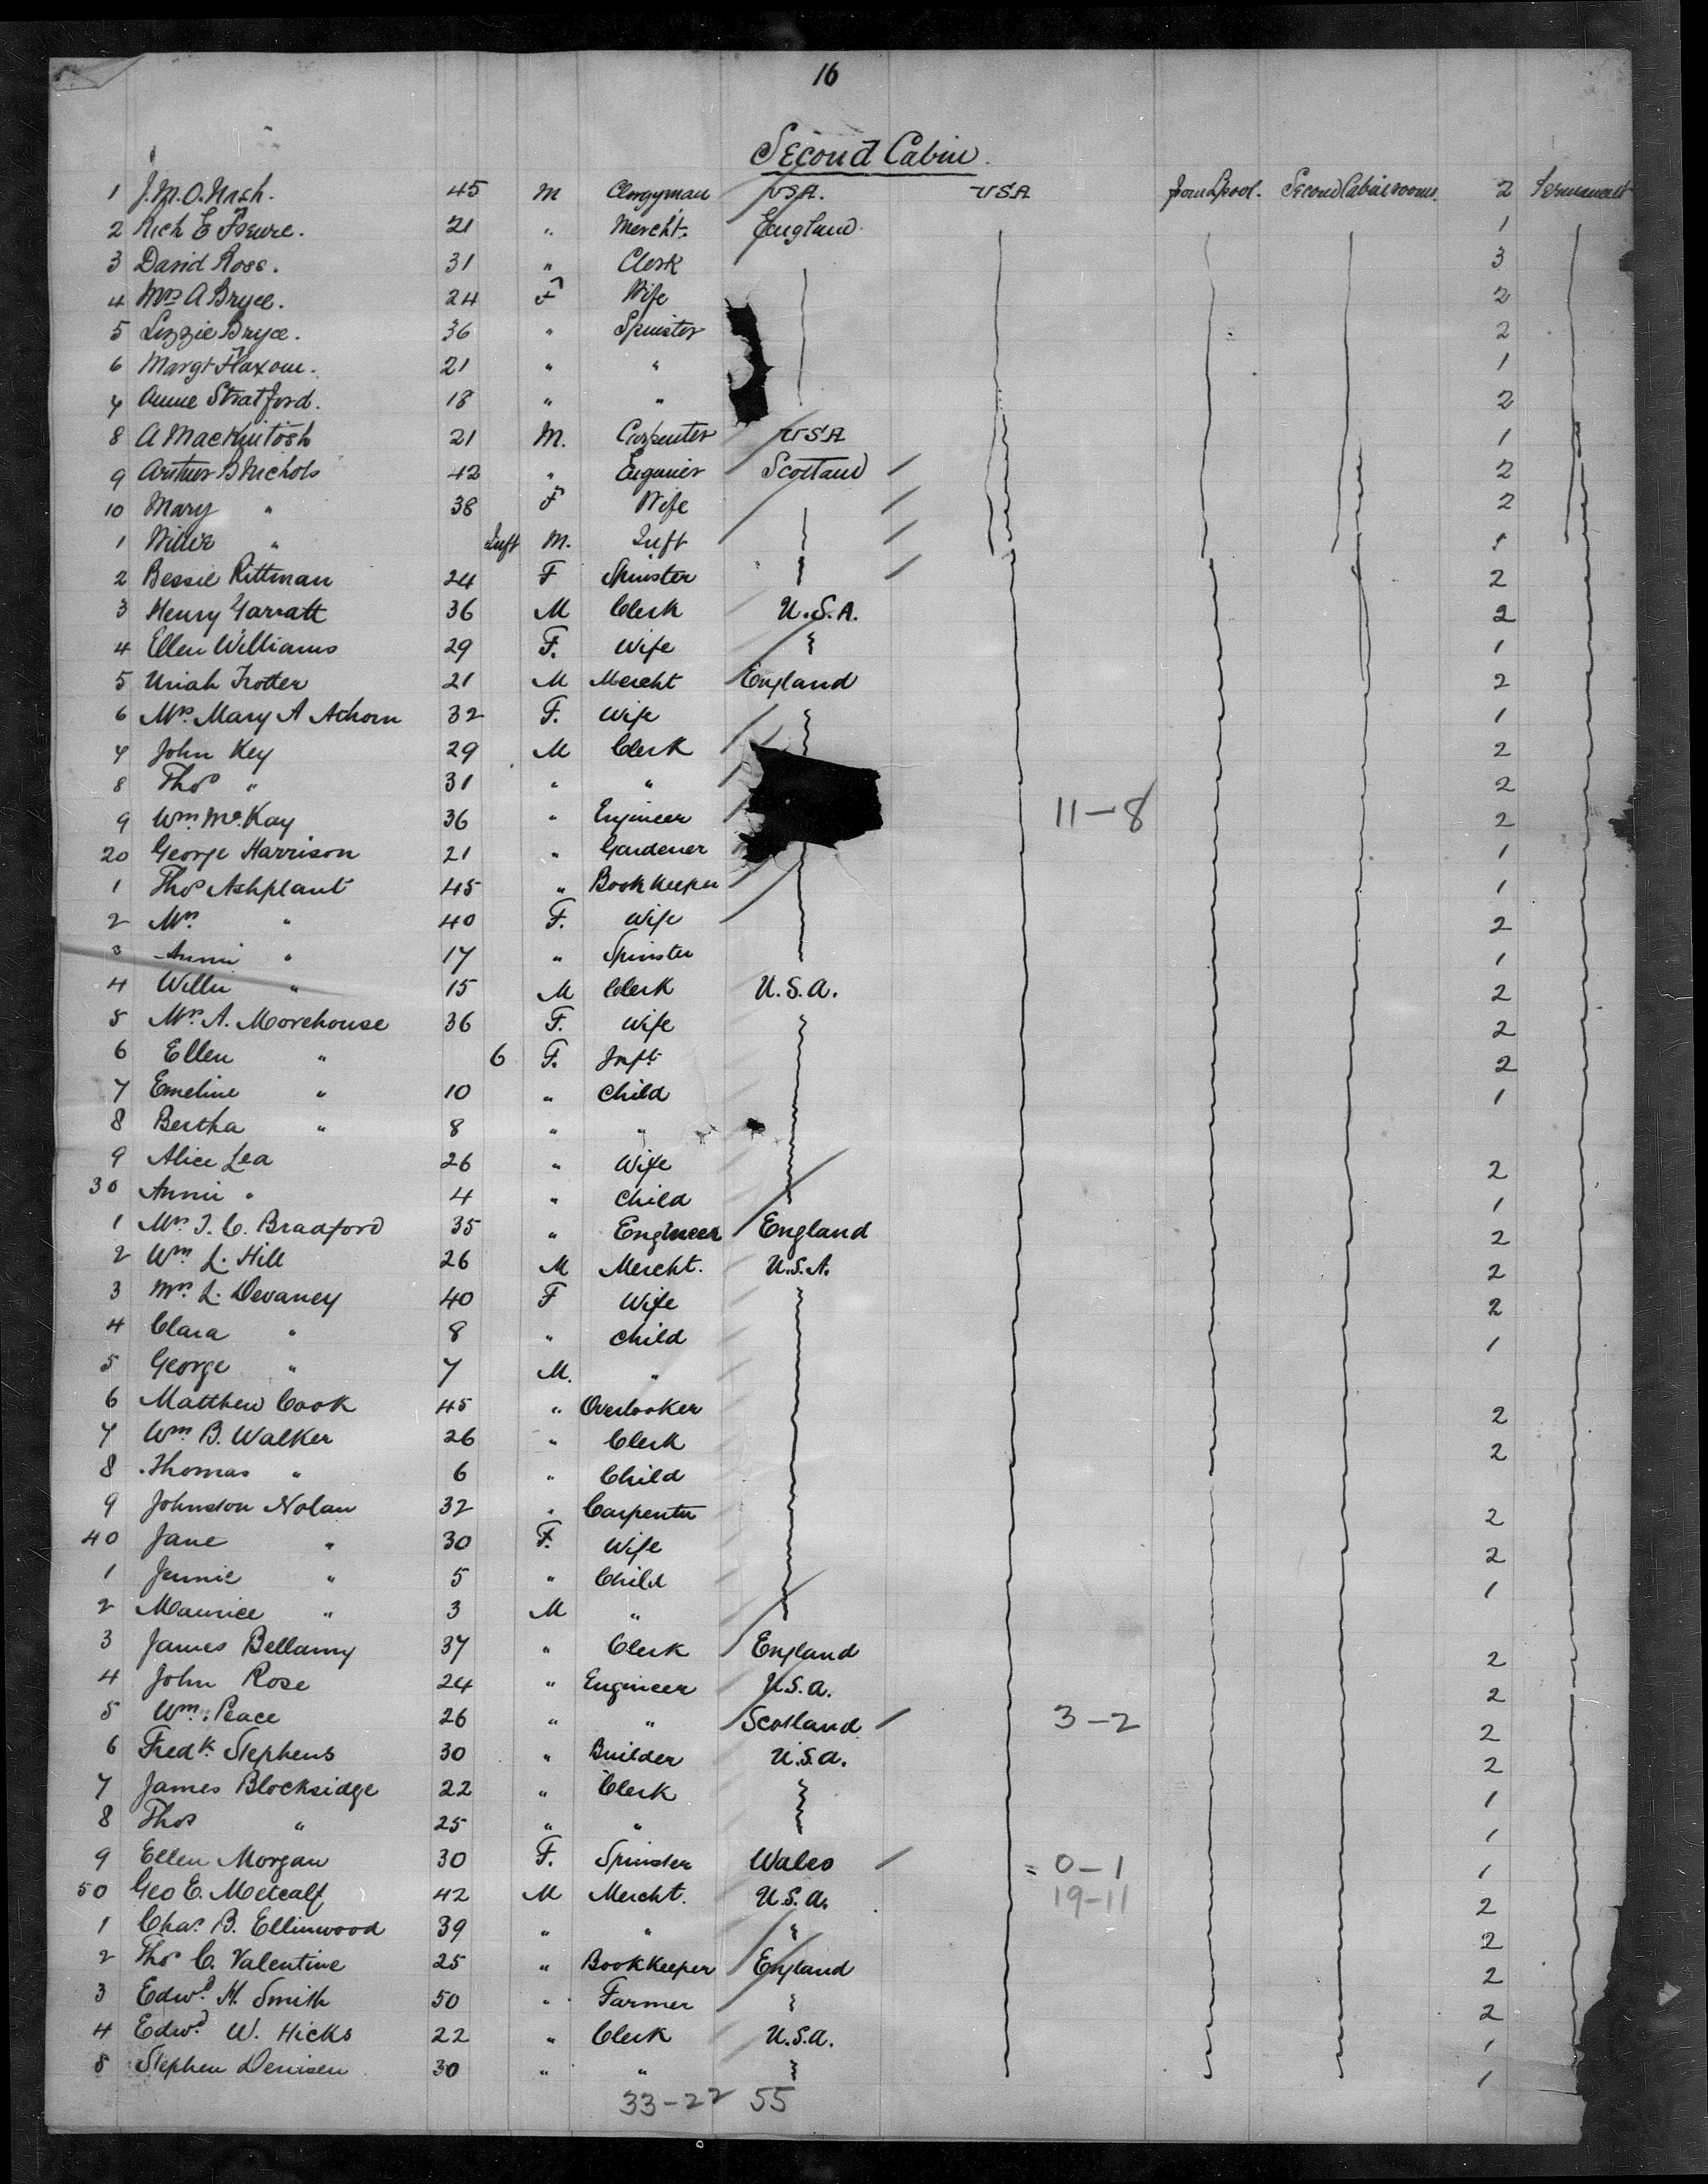 16
Second Cabin.
1 J. M. O. Nash. 45 M Clergyman USA. USA Second Cabin rooms. 2
2 Rich E 21 " Mercht. England 1
3 David Ross. 31 " Clerk 3
4 Mrs A Bryce. 24 F Wife 2
5 Lizzie Bryce. 36 " Spinster 2
6 Margt 21 " " 1
7 Annie Stratford. 18 " " 2
8 A Mackintosh 21 M. Carpenter USA 1
9 Arthur B Nichols 42 " Engineer Scotland 2
10 Mary " 38 F Wife 2
1 Willie " Inft M. Inft 1
2 Bessie Rittman 24 F Spinster 2
3 Henry Garratt 36 M Clerk U.S.A. 2
4 Ellen Williams 29 F. Wife 1
5 Uriah Trotter 21 M Mercht England 2
6 Mrs. Mary A Athorn 32 F. Wife 1
7 John Key 29 M Clerk 2
8 Thos " 31 " " 2
9 Wm. McKay 36 " Engineer 11-8 2
20 George Harrison 21 " Gardener 1
1 Thos Ashplant 45 " Book Keeper 1
2 Mrs. " 40 F. Wife 2
3 Annie " 17 " Spinster 1
4 Willie " 15 M Clerk U.S.A. 2
5 Mrs. A. Morehouse 36 F. Wife 2
6 Ellen " 6 F. Inft 2
7 Emeline " 10 " Child 1
8 Bertha " 8 " "
9 Alice Lea 26 " Wife 2
30 Annie " 4 " Child 1
1 Mrs. J. C. Bradford 35 " Engineer England 2
2 Wm. L. Hill 26 M Mercht. U.S.A. 2
3 Mrs. L. Devaney 40 F Wife 2
4 Clara " 8 " child 1
5 George " 7 M. "
6 Matthew Cook 45 " Overlooker 2
7 Wm. B. Walker 26 " Clerk 2
8 Thomas " 6 " Child
9 Johnston Nolan 32 " Carpenter 2
40 Jane " 30 F. Wife 2
1 Jennie " 5 " Child 1
2 Maurice " 3 M "
3 James Bellamy 37 " Clerk England 2
4 John Rose 24 " Engineer U.S.A. 2
5 Wm. Peace 26 " " Scotland 3-2 2
6 Fredk. Stephens 30 " Builder U.S.A. 2
7 James Blocksidge 22 " Clerk 1
8 Thos " 25 " " 1
9 Ellen Morgan 30 F. Spinster Wales = 0-1 1
50 Geo E. Metcalf 42 M Mercht. U.S.A. 19-11 2
1 Chas. B. Ellinwood 39 " " 2
2 Thos C. Valentine 25 " Bookkeeper England 2
3 Edwd. H. Smith 50 " Farmer 2
4 Edwd. W. Hicks 22 " Clerk U.S.A. 1
5 Stephen Denisen 30 " " 1
33-22 55